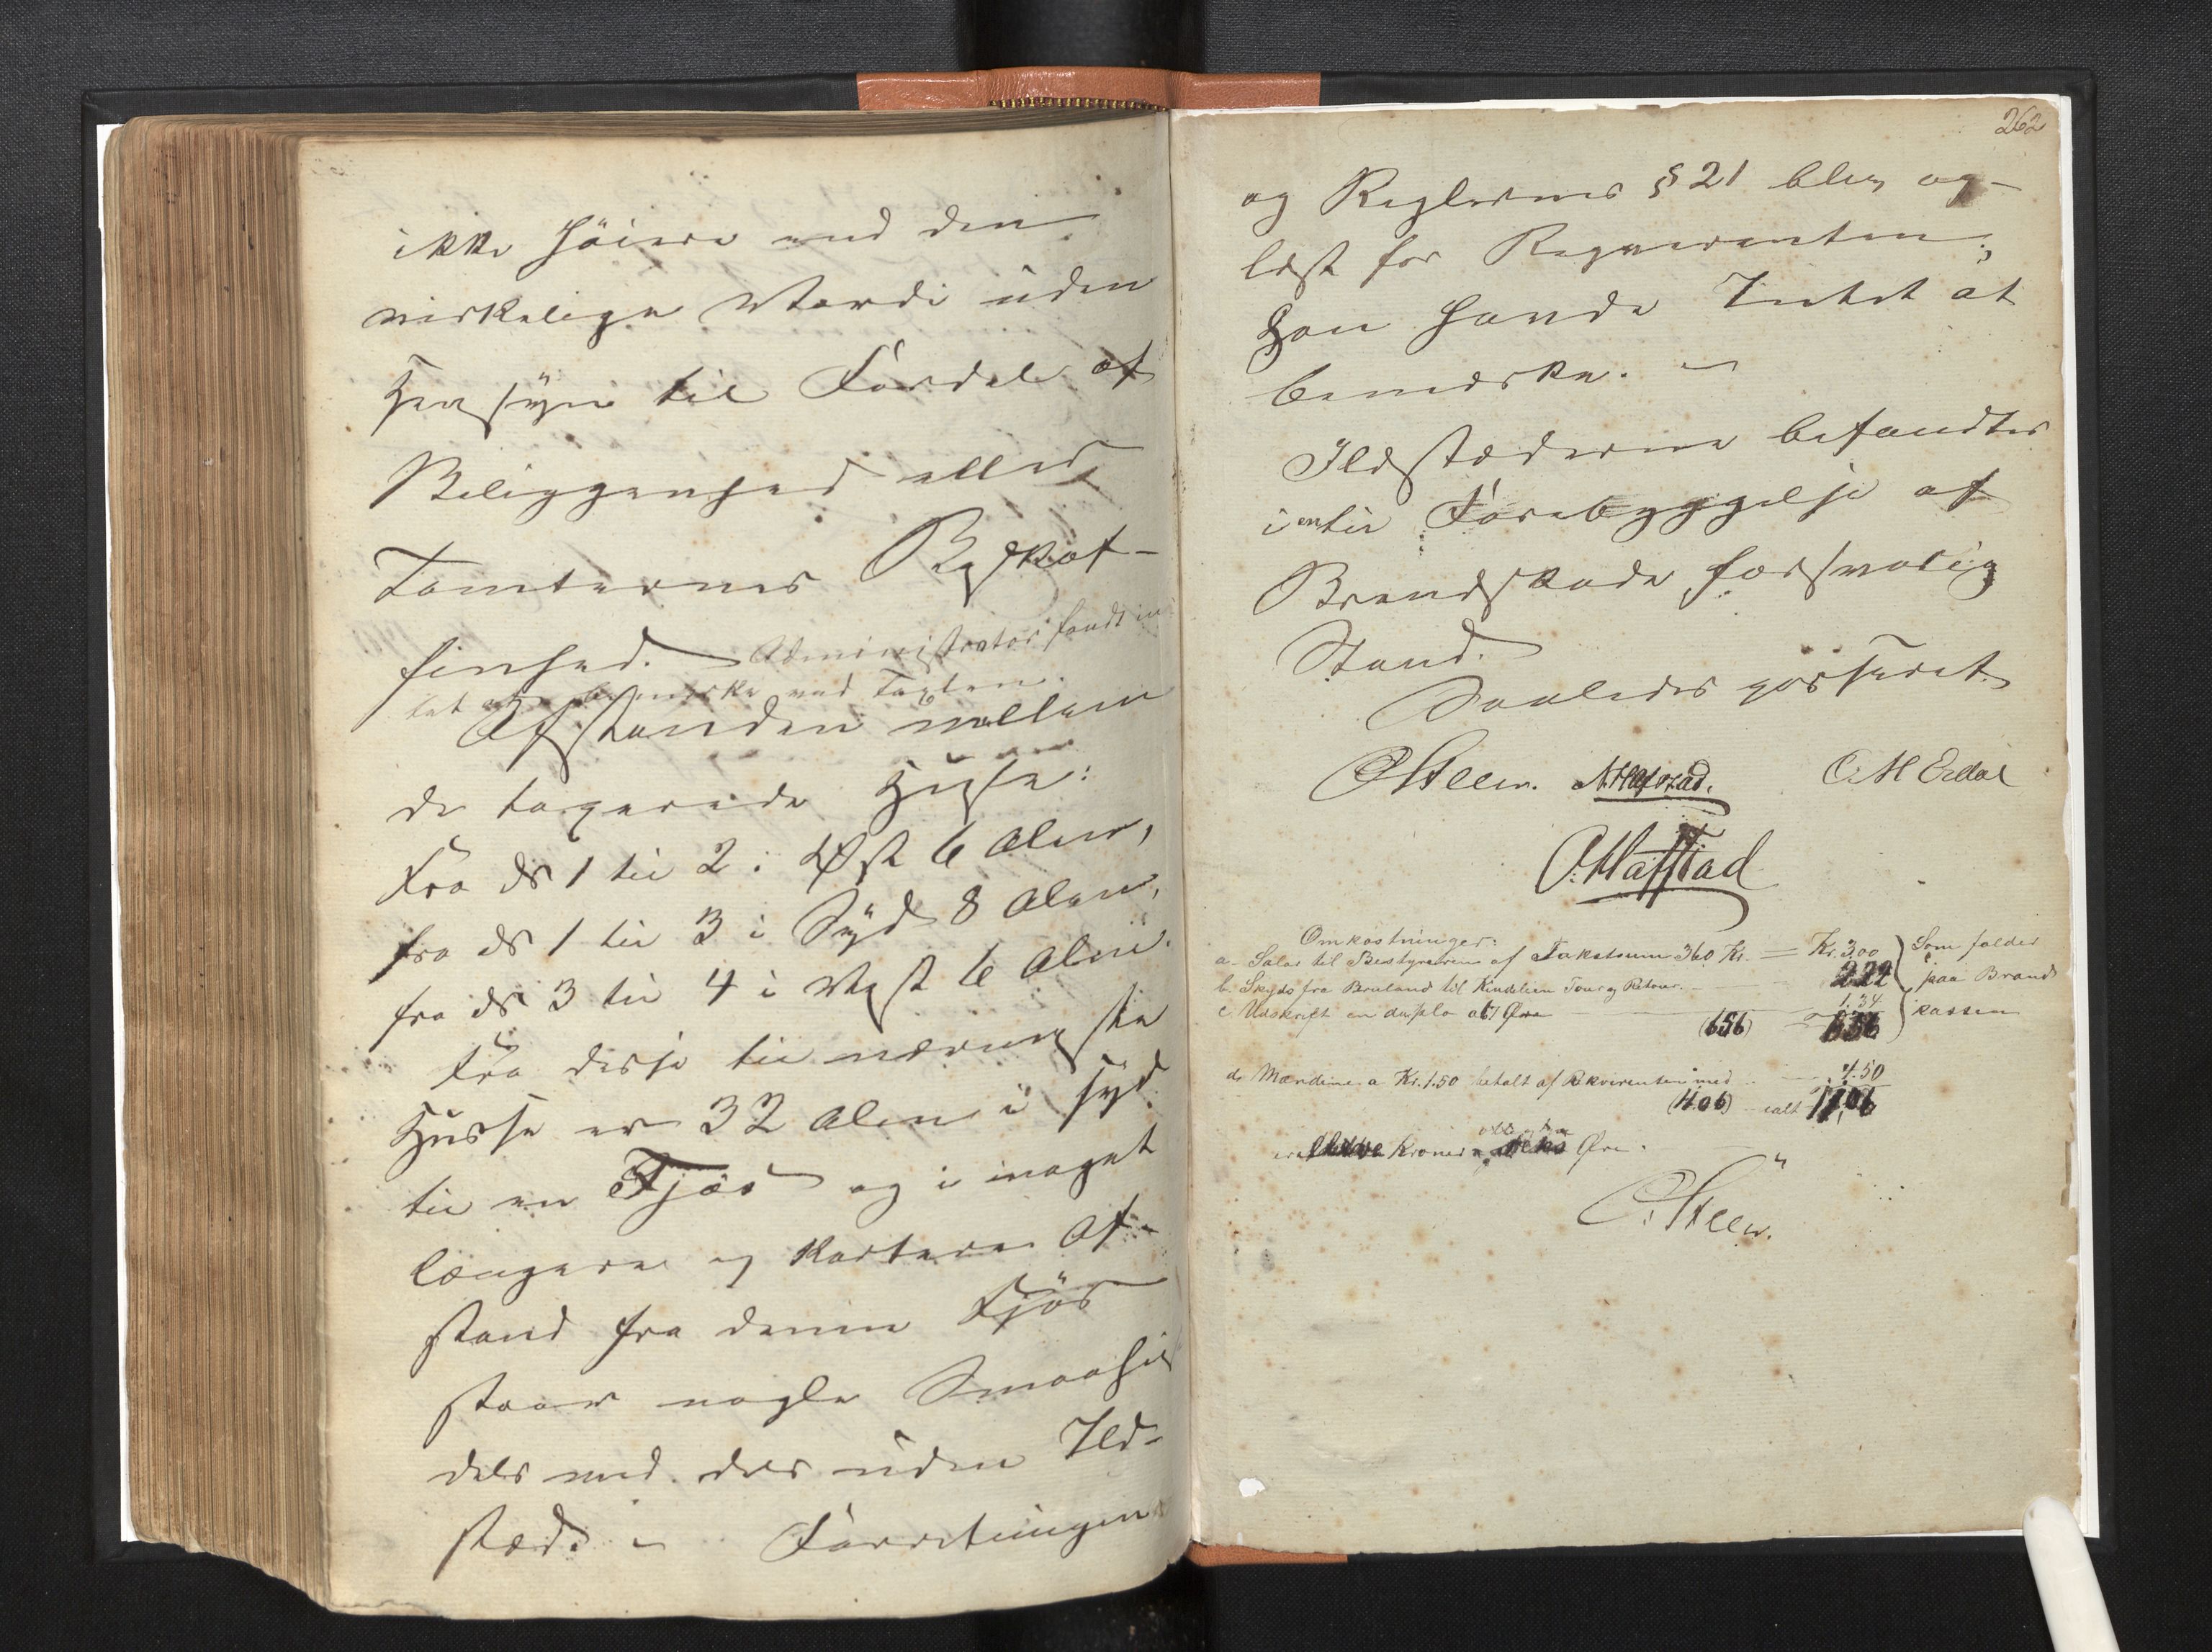 ikke høiere end den
virkelige Værdi uden
Hensyn til Fordele af
Beliggenhed eller
Tomternes Beskaf-
fenhed. Administrator fandt in-
tet at bemærke ved Taxten.
Afstanden mellem
de taxerede Huse:
Fra No 1 til 2 i Øst 6 Alen,
fra No 1 til 3 i Syd 8 Alen,
fra No 3 til 4 i Vest 6 Alen.
Fra disse til nærmeste
Huse er 32 Alen i syd
til en Fjøs og i noget
længere og kortere Af-
stand fra denne Fjøs
staar nogle Smaahus
dels med dels uden Ild-
sted. - Forretningen
262
og Reglernes § 21 blev op-
læst for Rekvirenten;
Han havde Intet at
bemærke. -
Ildstederne befandtes
i en til Forebyggelse af
Brandskade forsvarlig
Stand.
Saaledes passeret.
O Steen. A. Hafstad. O. M Eldal
O. Hafstad
Omkostninger:
a. Salar til Bestyreren af Takstsum 360 Kr. = Kr. 3,00 Som falder
b. Skyds fra Bruland til Tour og Retour. - 222 paa Brand
c Udskrift en duplo a 67 Øre 1.34 kassen
(656) 656
d. Mændene a Kr. 1.50 betalt af Rekvirenten med 4.50
(11.06) ialt 11,06
Kroner Øre.
O. Steen.